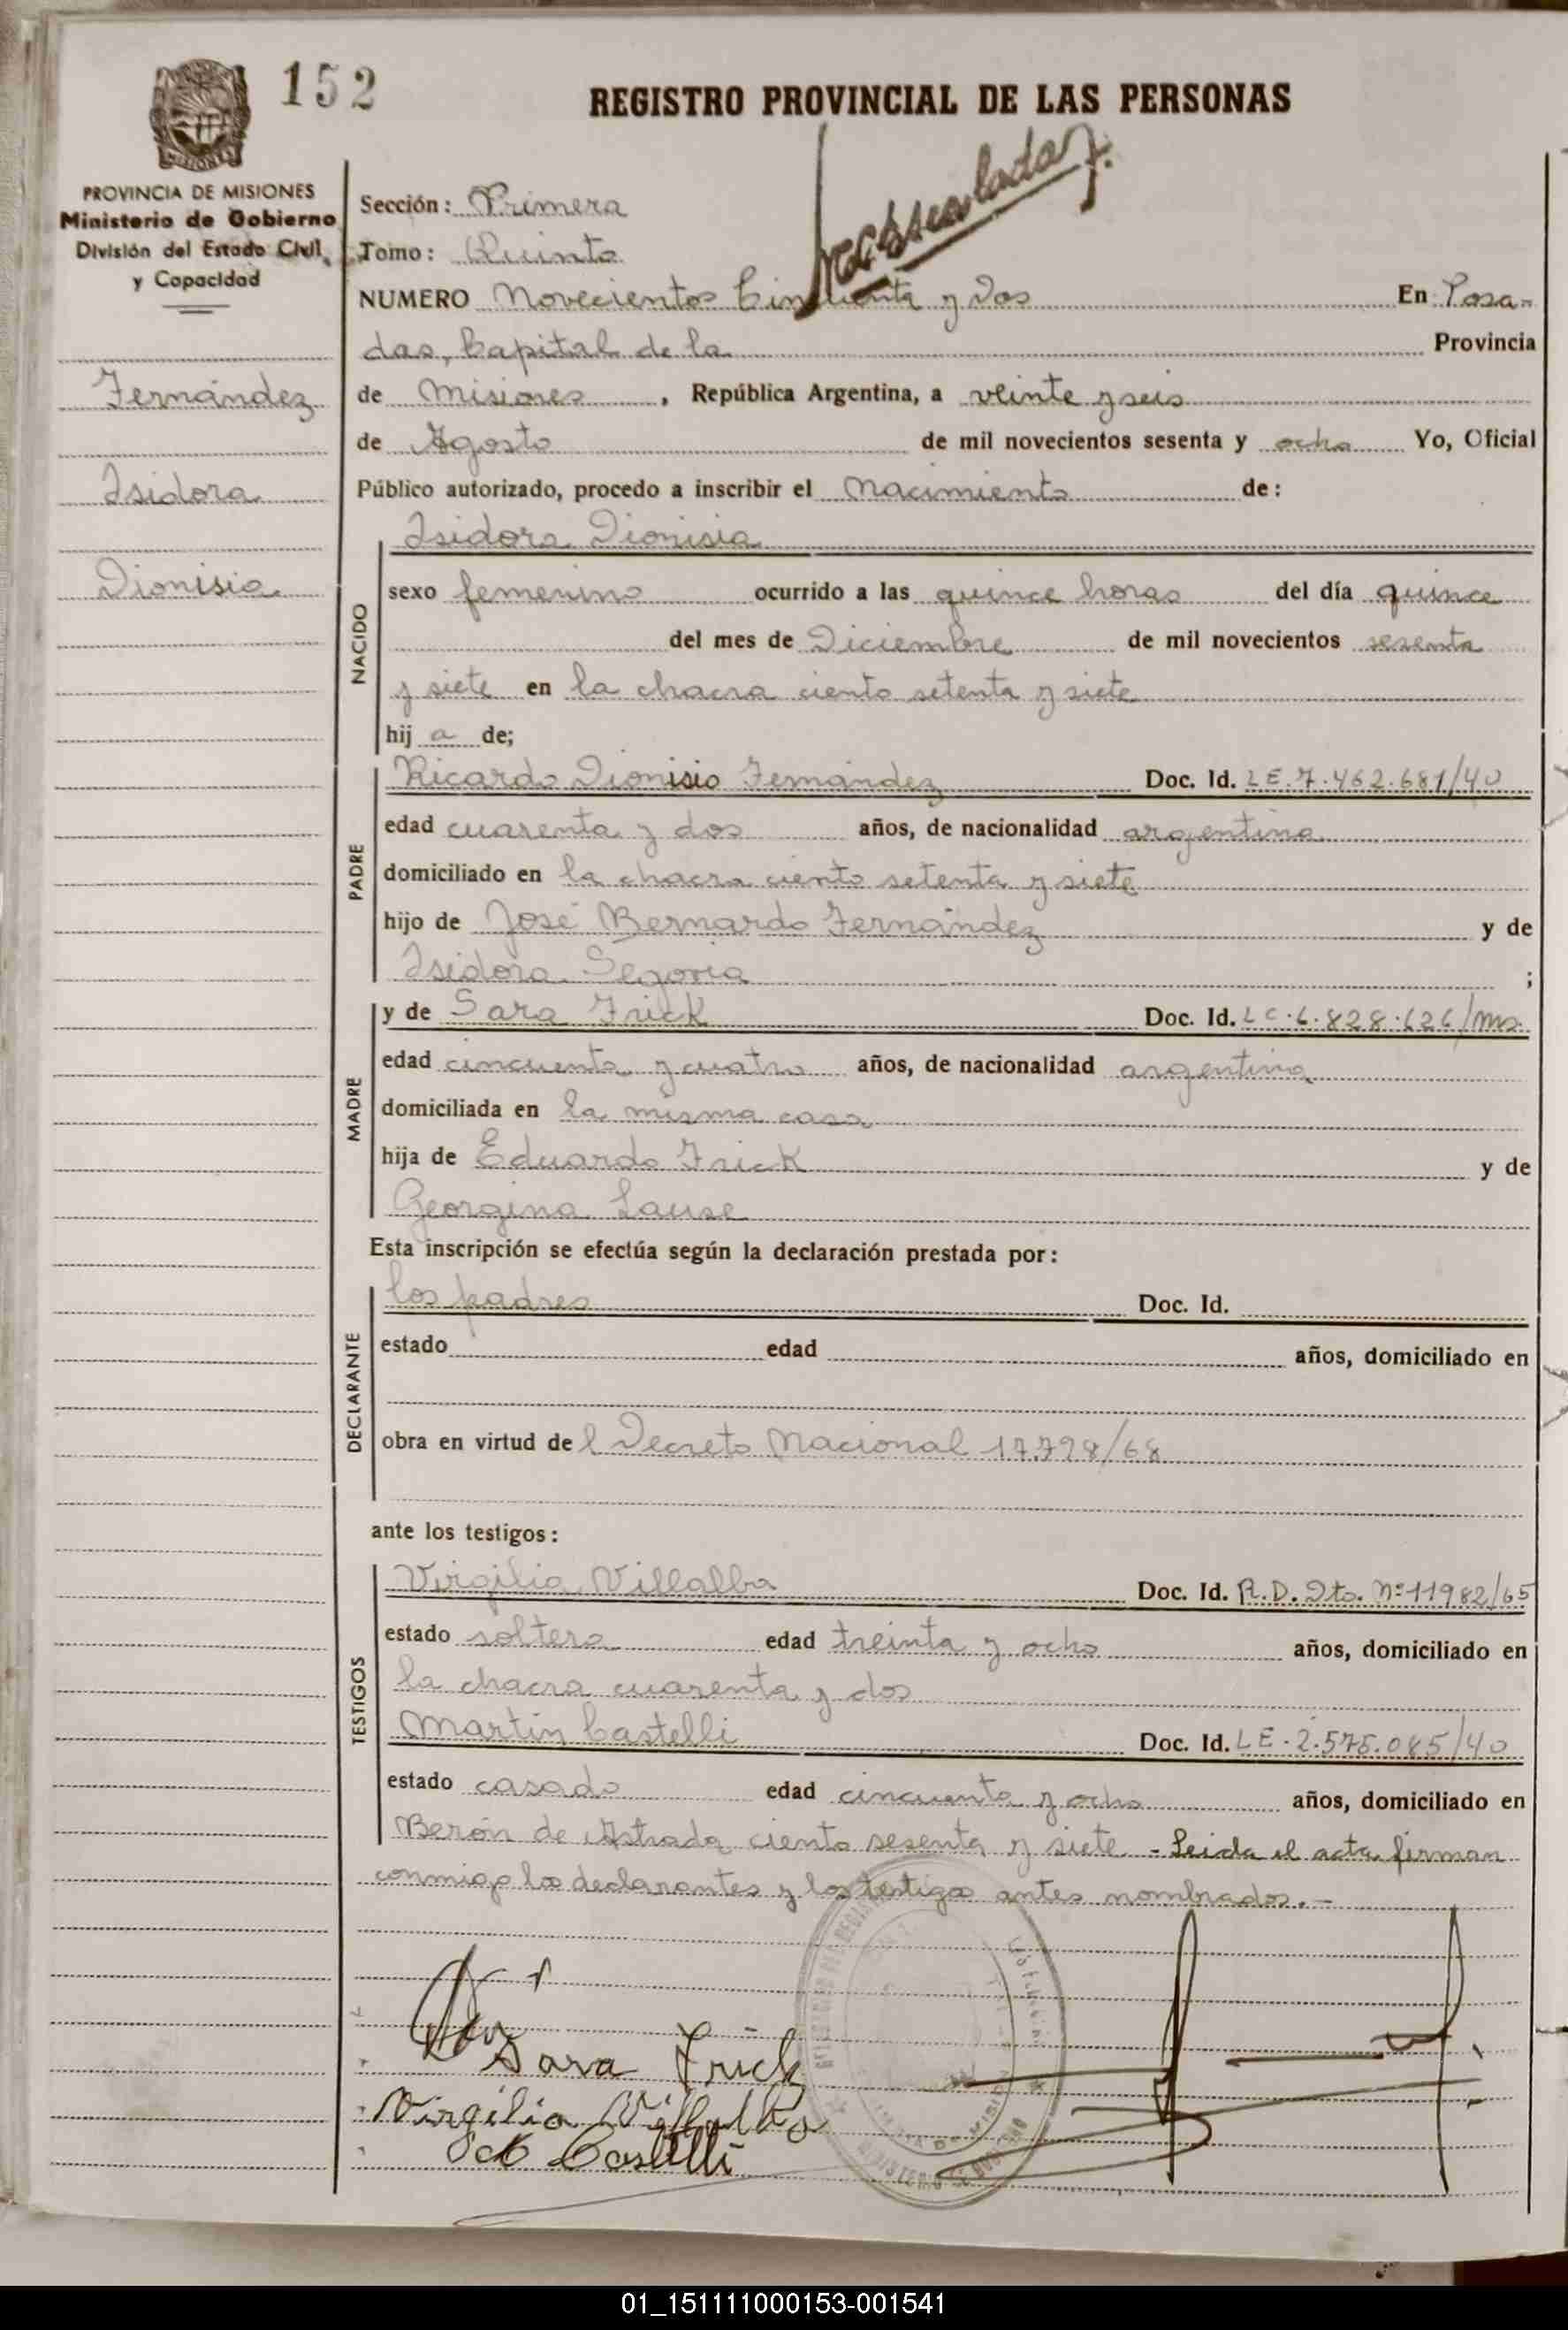 152
REGISTRO PROVINCIAL DE LAS PERSONAS
MISIONES
PROVINCIA DE MISIONES
Ministerio de Gobierno
División del Estado Civil
y Capacidad
Fernández
Isidora
Dionisia
Sección: Primera
Tomo: Quinto
NUMERO Novecientos Cincuenta y Dos En Posa-
das, Capital de la Provincia
de Misiones, República Argentina, a veinte y seis
de Agosto de mil novecientos sesenta y ocho Yo, Oficial
Público autorizado, procedo a inscribir el Nacimiento de:
Isidora Dionisia
NACIDO
sexo femenino ocurrido a las quince horas del día quince
del mes de Diciembre de mil novecientos sesenta
y siete en la chacra ciento setenta y siete
hij a de;
PADRE
Ricardo Dionisio Fernández Doc. Id. LE. 7.462.681/40
edad cuarenta y dos años, de nacionalidad argentina
domiciliado en la chacra ciento setenta y siete
hijo de José Bernardo Fernández y de
Isidora Segovia ;
MADRE
y de Sara Frick Doc. Id. LC. 6.828.626/ms.
edad cincuenta y cuatro años, de nacionalidad argentina
domiciliada en la misma casa
hija de Eduardo Frick y de
Georgina Lause
Esta inscripción se efectúa según la declaración prestada por:
DECLARANTE
los padres Doc. Id.
estado edad años, domiciliado en
obra en virtud de l Decreto Nacional 17.798/68
ante los testigos:
TESTIGOS
Virgilia Villalba Doc. Id. R.D. Dto. Nº 11982/65
estado soltera edad treinta y ocho años, domiciliado en
la chacra cuarenta y dos
Martin Castelli Doc. Id. LE. 2.575.085/40
estado casado edad cincuenta y ocho años, domiciliado en
Berón de Astrada ciento sesenta y siete - Leida el acta firman
conmigo los declarantes y los testigos antes nombrados. -
Sara Frick
Virgilia Villalba
Castelli
01_151111000153-001541